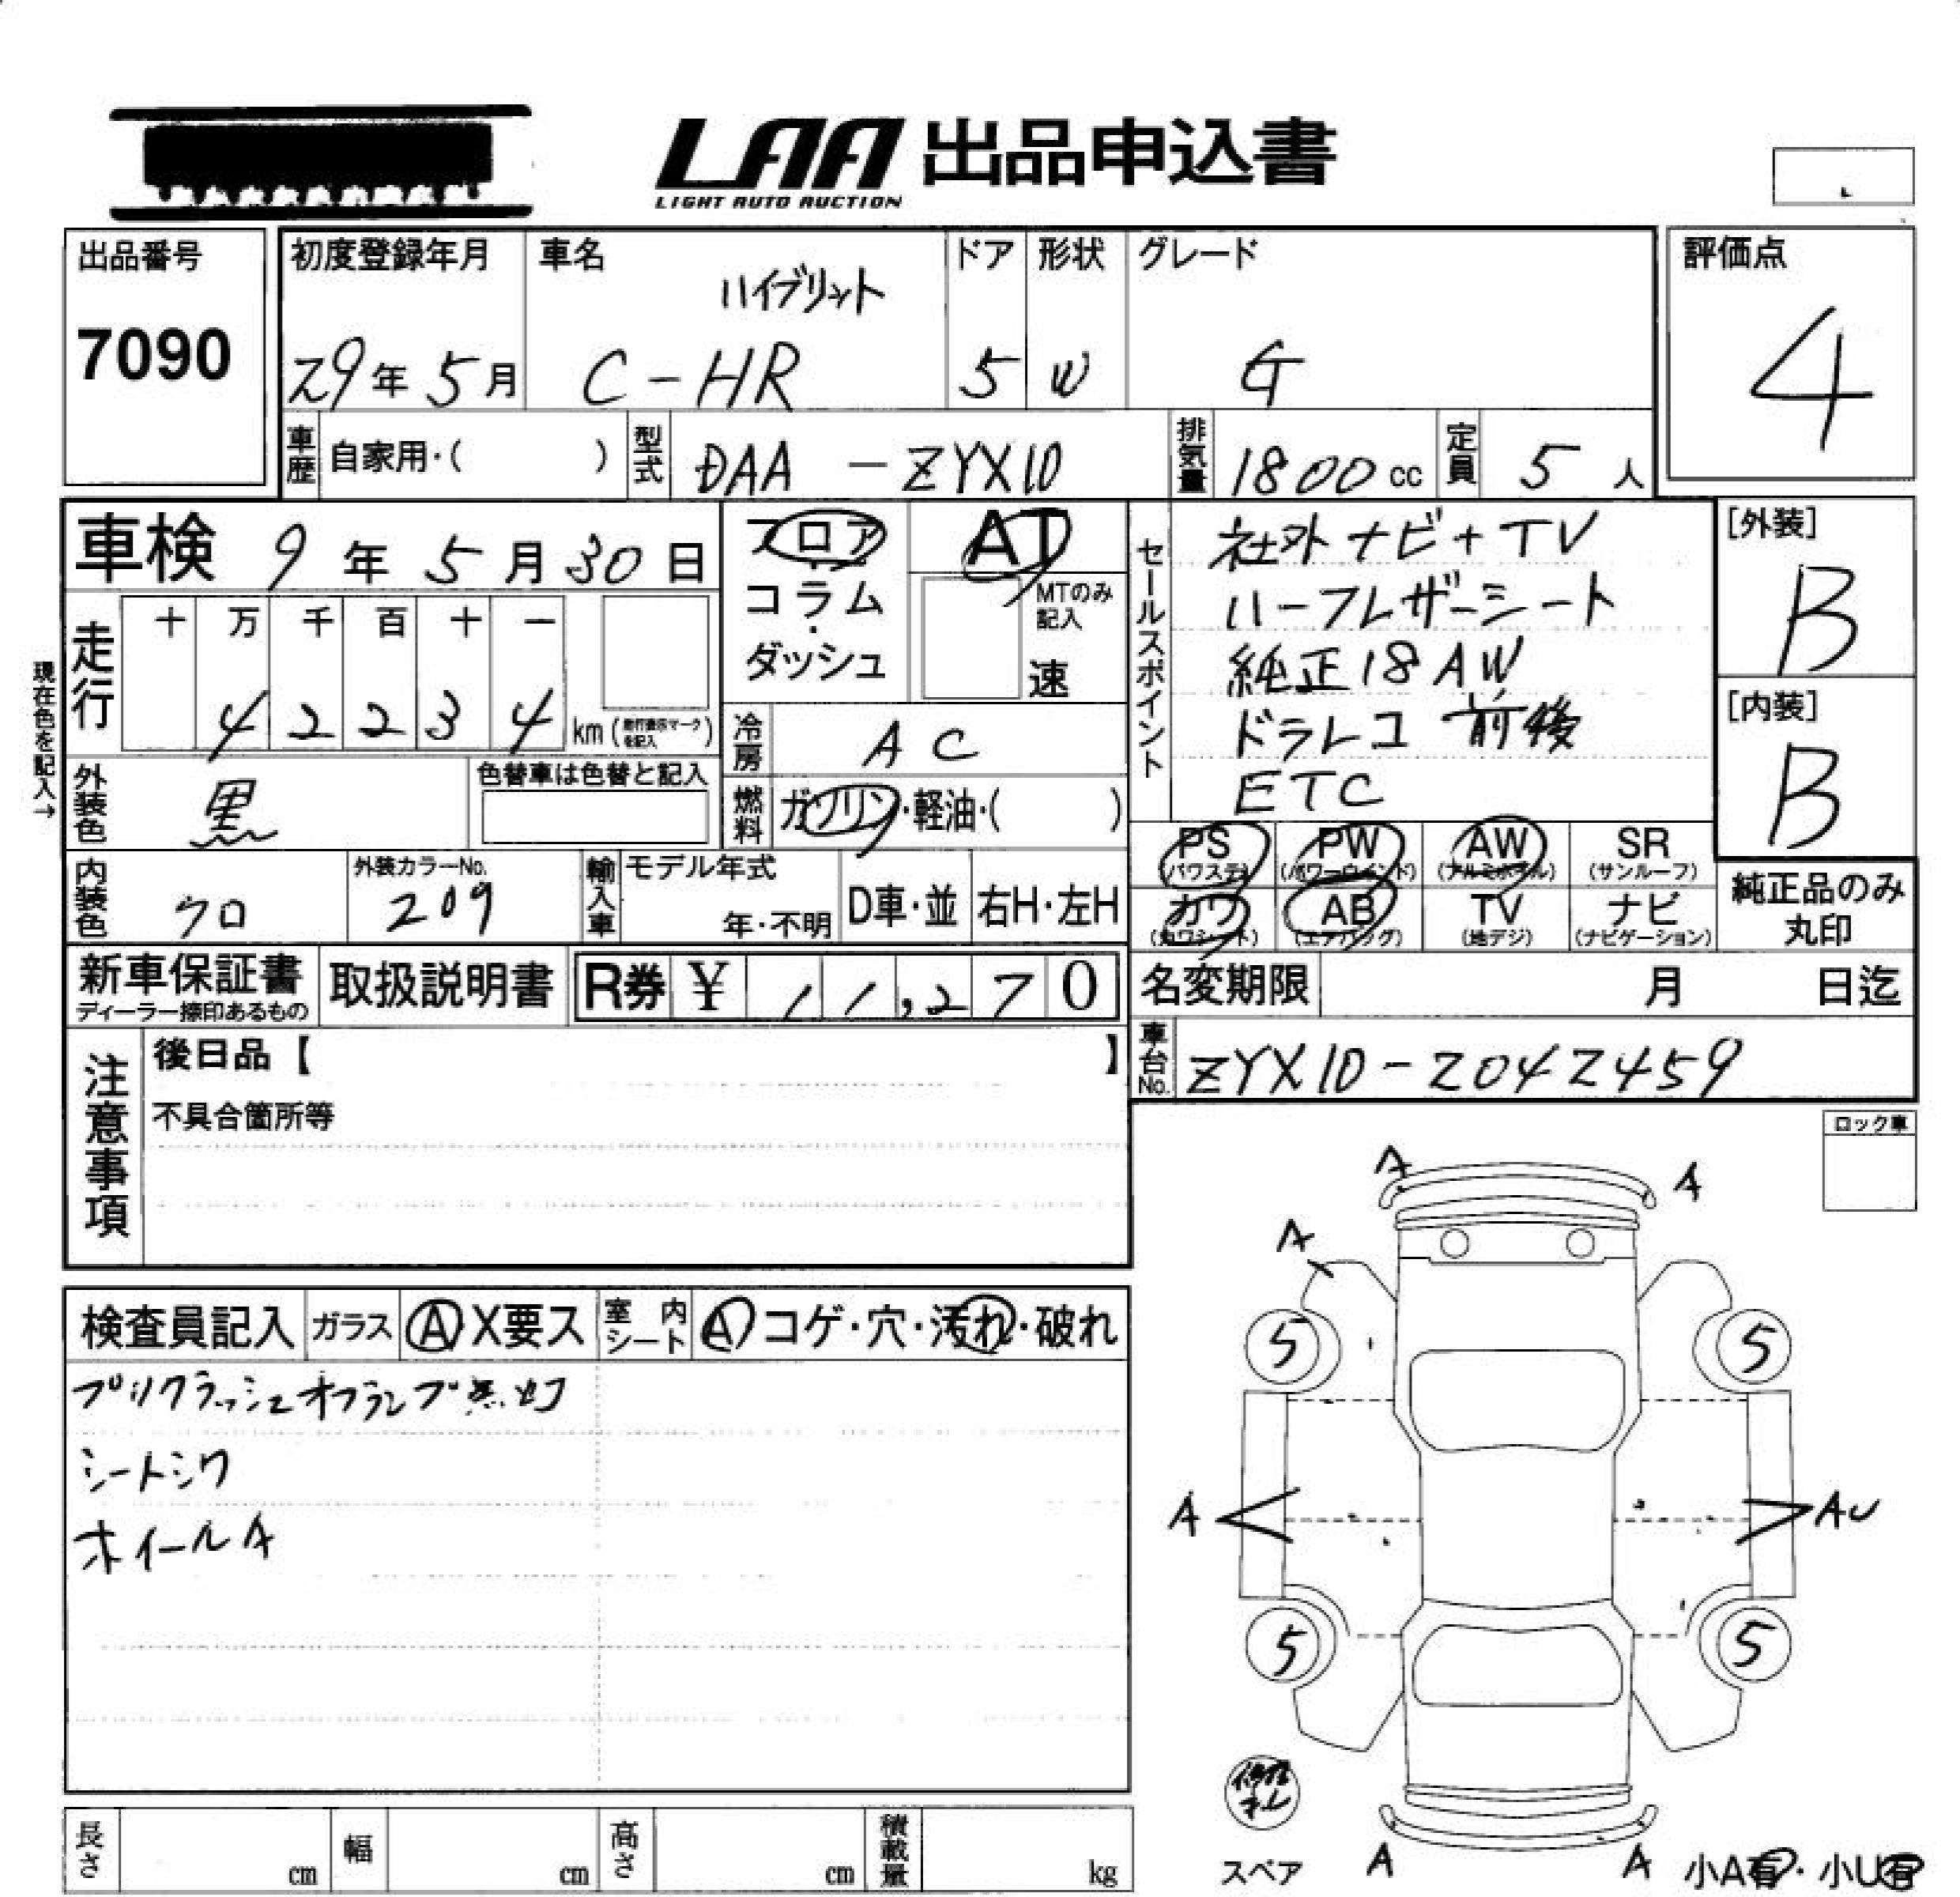 LAA 出品申込書
LIGHT AUTO AUCTION
出品番号
7090
初度登録年月
29年5月
車名
ハイブリット
C-HR
ドア
5
形状
W
グレード
G
評価点
4
車歴 自家用・( )
型式 DAA-ZYX10
排気量 1800cc
定員 5人
車検 9年5月30日
現在色を記入→
走行
十 万 千 百 十 一
4 2 2 3 4 km (走行表示マークを記入)
フロア
コラム
・
ダッシュ
AT
MTのみ
記入
速
冷房 AC
燃料 ガソリン・軽油・( )
外装色 黒
色替車は色替と記入
内装色 クロ
外装カラーNo.
209
輸入車 モデル年式
年・不明 D車・並 右H・左H
セールスポイント
社外ナビ+TV
ハーフレザーシート
純正18AW
ドラレコ 前後
ETC
[外装]
B
[内装]
B
PS PW AW SR
(パワステ) (パワーウインド) (アルミホイル) (サンルーフ)
カワ AB TV ナビ
(カワシート) (エアバッグ) (地デジ) (ナビゲーション)
純正品のみ
丸印
新車保証書
ディーラー捺印あるもの
取扱説明書
R券 ¥ 11,270
名変期限 月 日迄
車台No. ZYX10-2042459
注意事項
後日品【 】
不具合箇所等
ロック車
検査員記入 ガラス A X要ス 室内シート A コゲ・穴・汚れ・破れ
プリクラッシュオフランプ点灯
シートシワ
ホイールA
A A
A
5 5
A AU
5 5
修復
ナシ
スペア
A A
小A有・小U有
長さ cm 幅 cm 高さ cm 積載量 kg